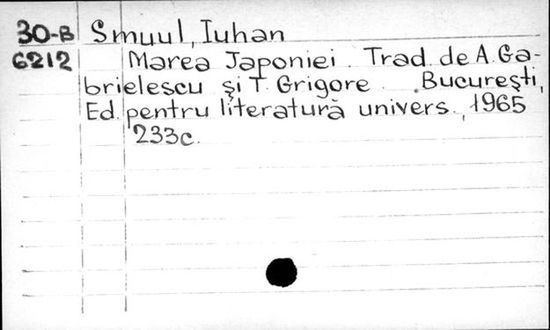 30-B Smuul, Iuhan
6212 Marea Japoniei. Trad. de A. Ga-
brielescu şi T. Grigore. Bucureşti,
Ed. pentru literatură univers., 1965
233c.